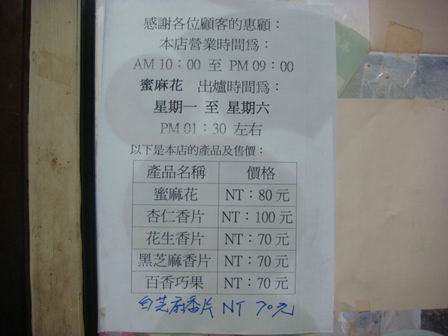 感謝各位顧客的惠顧：
本店營業時間為：
AM 10：00 至 PM 09：00
蜜麻花 出爐時間為：
星期一 至 星期六
PM 01：30 左右
以下是本店的產品及售價：
產品名稱 價格
蜜麻花 NT：80 元
杏仁香片 NT：100 元
花生香片 NT：70 元
黑芝麻香片 NT：70 元
百香巧果 NT：70 元
白芝麻香片 NT 70元